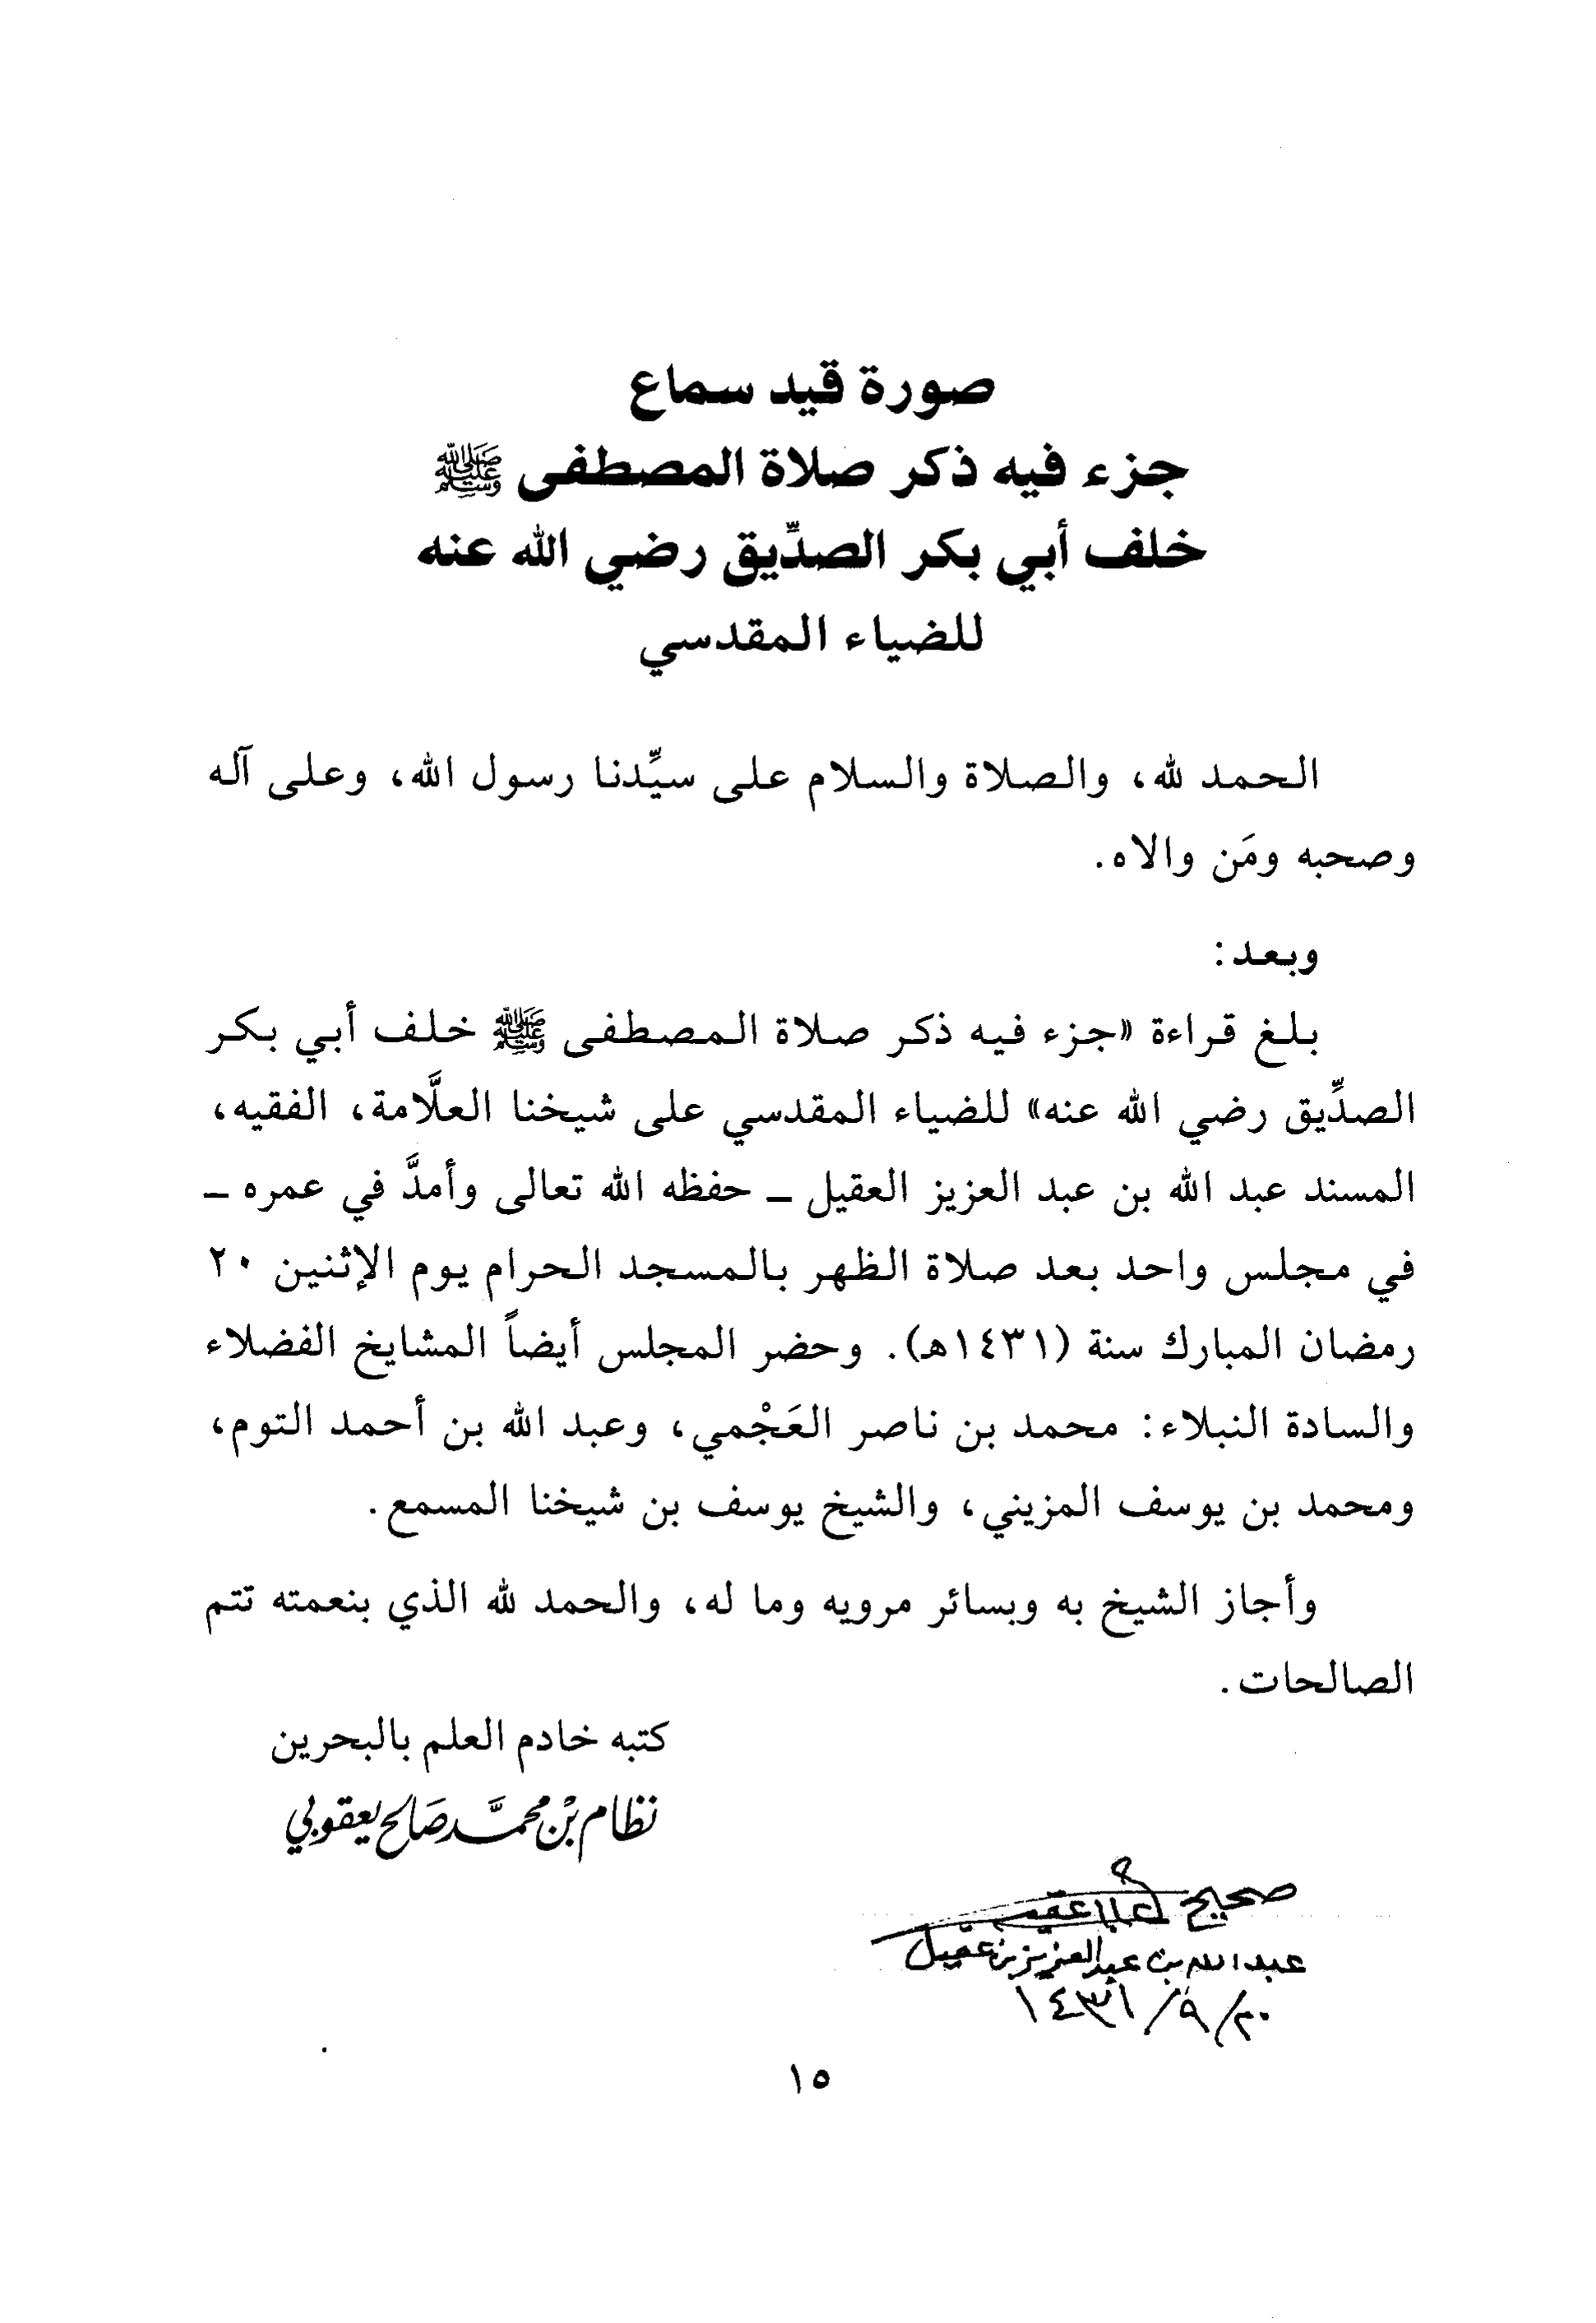 صورة قيد سماع
جزء فيه ذكر صلاة المصطفى ﷺ
خلف أبي بكر الصدِّيق رضي الله عنه
للضياء المقدسي
الحمد لله، والصلاة والسلام على سيِّدنا رسول الله، وعلى آله
وصحبه ومَن والاه.
وبعد:
بلغ قراءة «جزء فيه ذكر صلاة المصطفى ﷺ خلف أبي بكر
الصدِّيق رضي الله عنه» للضياء المقدسي على شيخنا العلَّامة، الفقيه،
المسند عبد الله بن عبد العزيز العقيل ــ حفظه الله تعالى وأمدَّ في عمره ــ
في مجلس واحد بعد صلاة الظهر بالمسجد الحرام يوم الإثنين ٢٠
رمضان المبارك سنة (١٤٣١هـ). وحضر المجلس أيضاً المشايخ الفضلاء
والسادة النبلاء: محمد بن ناصر العَجْمي، وعبد الله بن أحمد التوم،
ومحمد بن يوسف المزيني، والشيخ يوسف بن شيخنا المسمع.
وأجاز الشيخ به وبسائر مرويه وما له، والحمد لله الذي بنعمته تتم
الصالحات.
كتبه خادم العلم بالبحرين
نظام بن محمَّد صَالح يعقوبي
صحيح
عبد الله بن عبد العزيز بن عقيل
٢٠/٩/١٤٣١
١٥